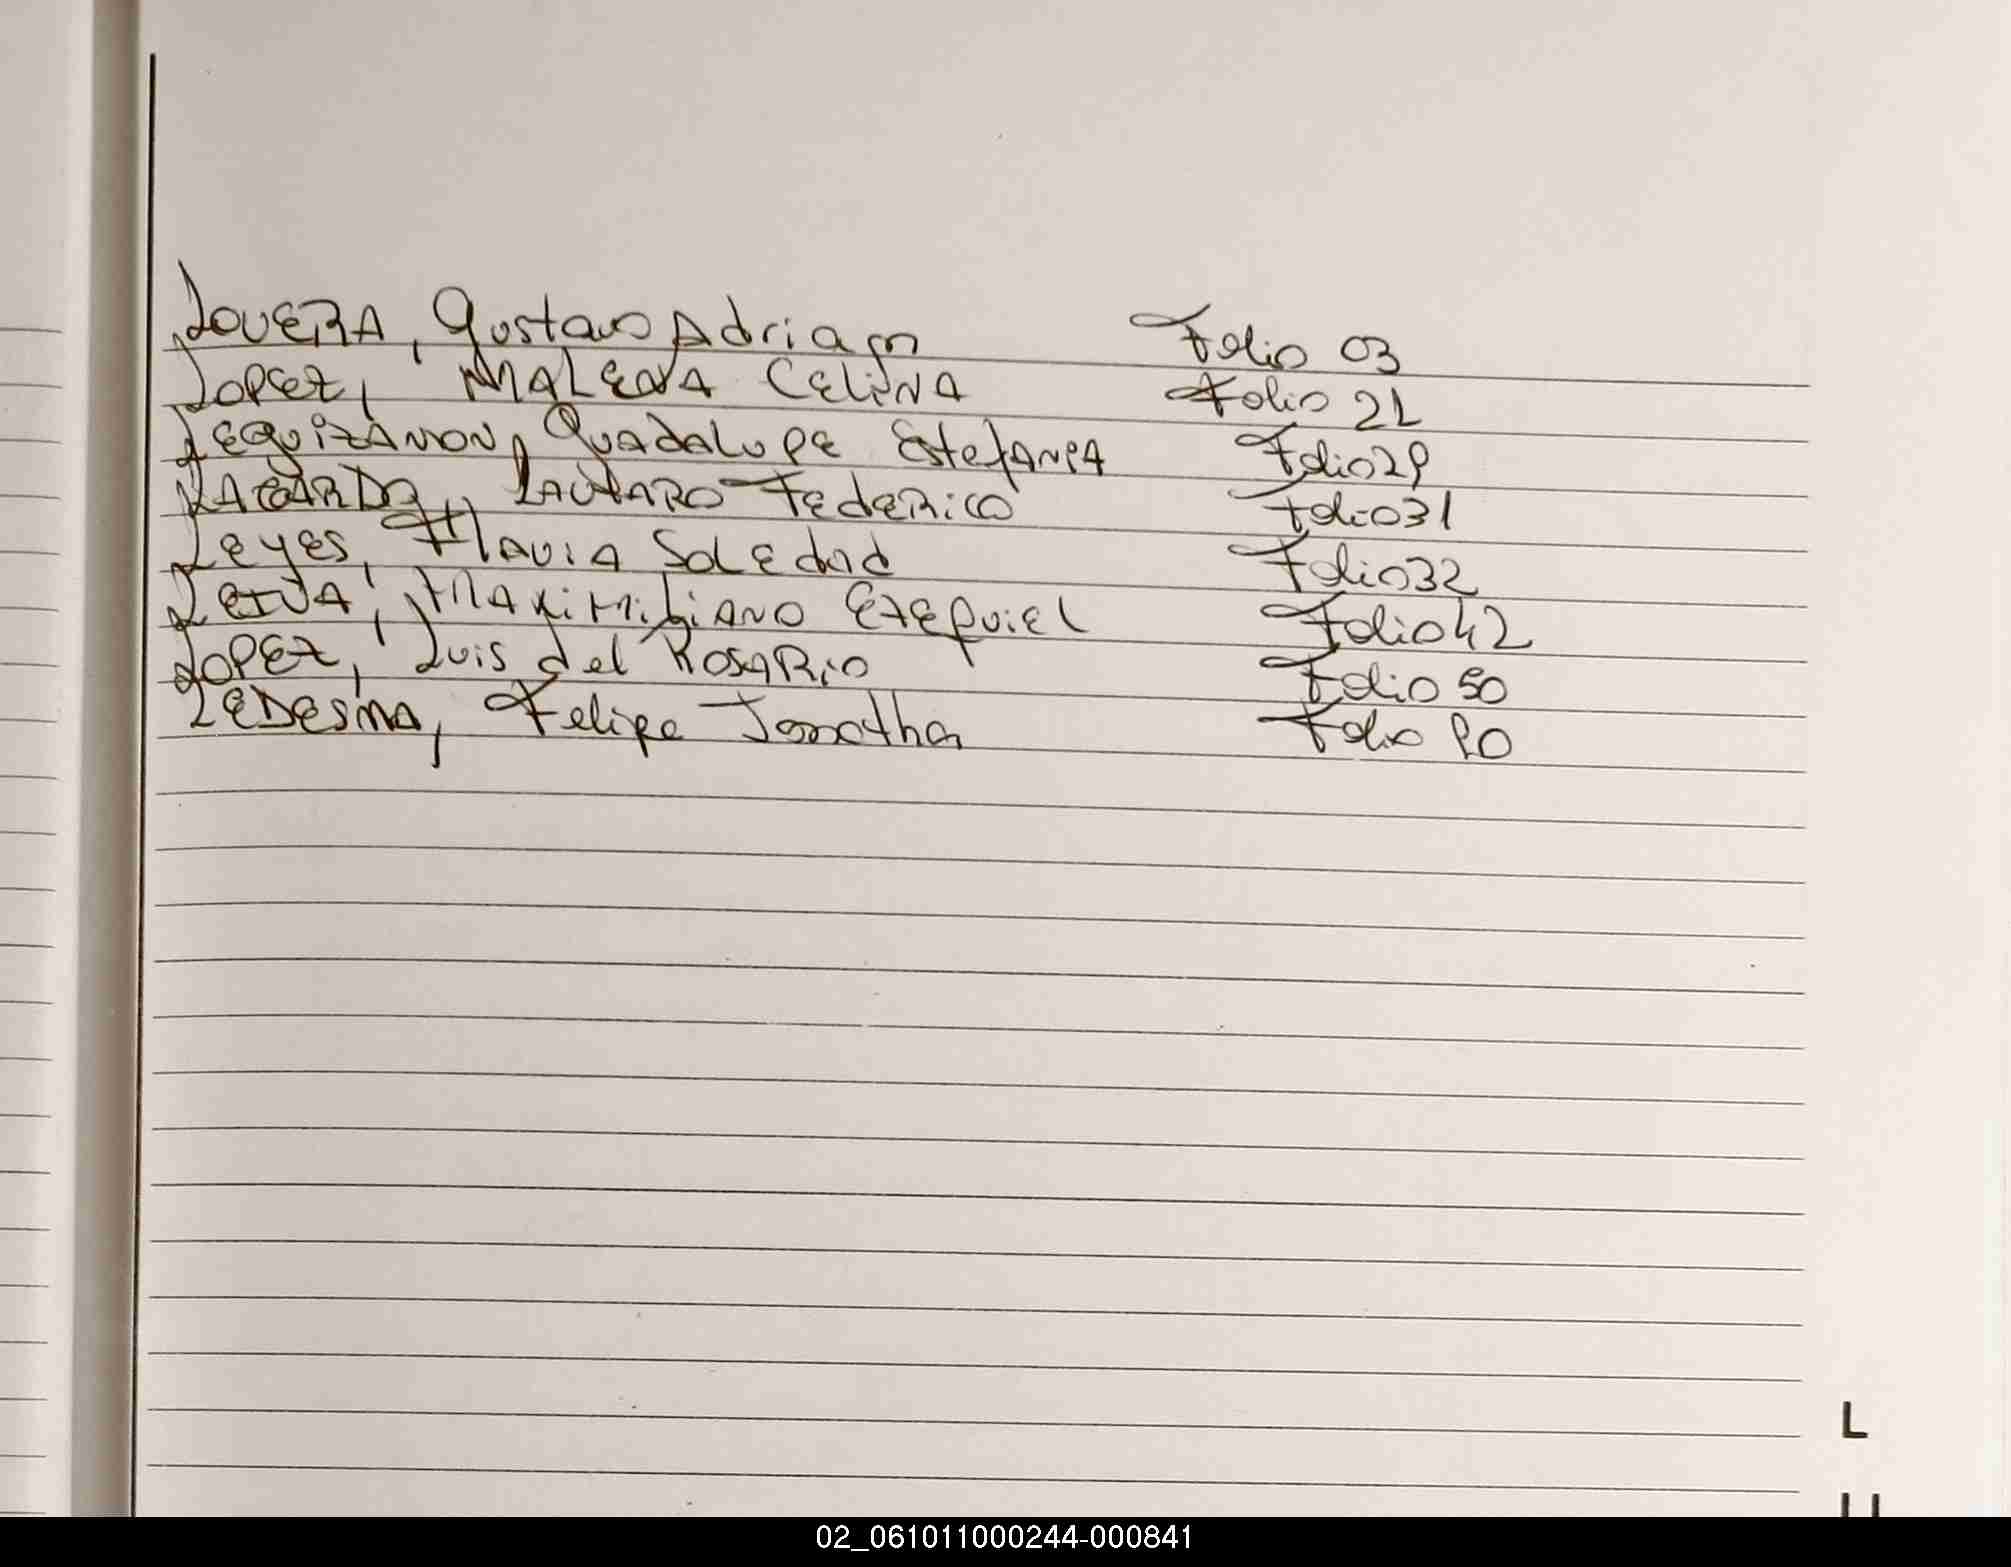 LOVERA, Gustavo Adrian Folio 03
LOPEZ, MALENA CELINA Folio 21
LEQUIZAMON, GUADALUPE EstefANIA Folio 29
LAUTARO FEDERICO Folio 31
Leyes, FLAVIA SOLEDAD Folio 32
LEIVA, MAXIMILIANO EZEQUIEL Folio 42
LOPEZ, Luis del ROSARIO Folio 50
LEDESMA, Felipe Jonathan Folio 90
L
LL
02_061011000244-000841